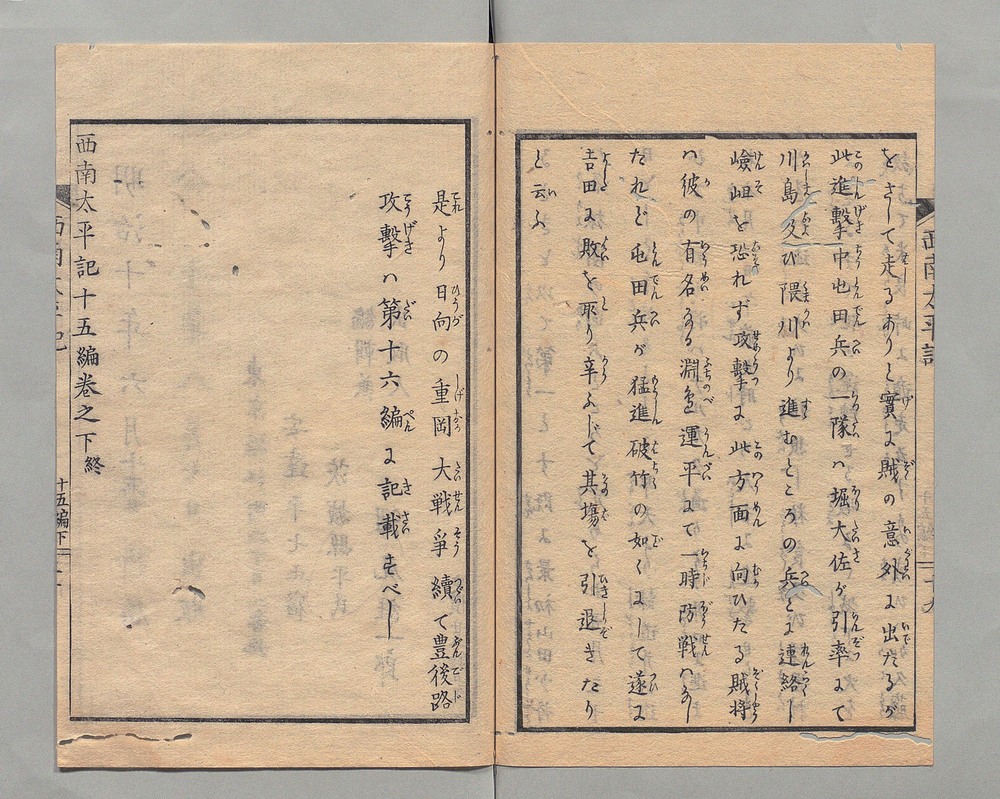 をさして走るありと實に賊の意外に出たるが
此進撃中屯田兵の一隊ハ堀大佐が引率にて
川島及び隈川より進むところの兵とに連絡し
嶮岨を恐れず攻撃に此方面に向ひたる賊将
ハ彼の有名なる淵邉運平にて一時防戦ハなし
たれど屯田兵が猛進破竹の如くにして遂に
吉田に敗を取り辛ふじて其塲を引退きたり
と云ふ
西南太平記
十九
是より日向の重岡大戦争續て豊後路
攻撃ハ第十六編に記載すべし
西南太平記十五編巻之下終
西南太平記
十五編下